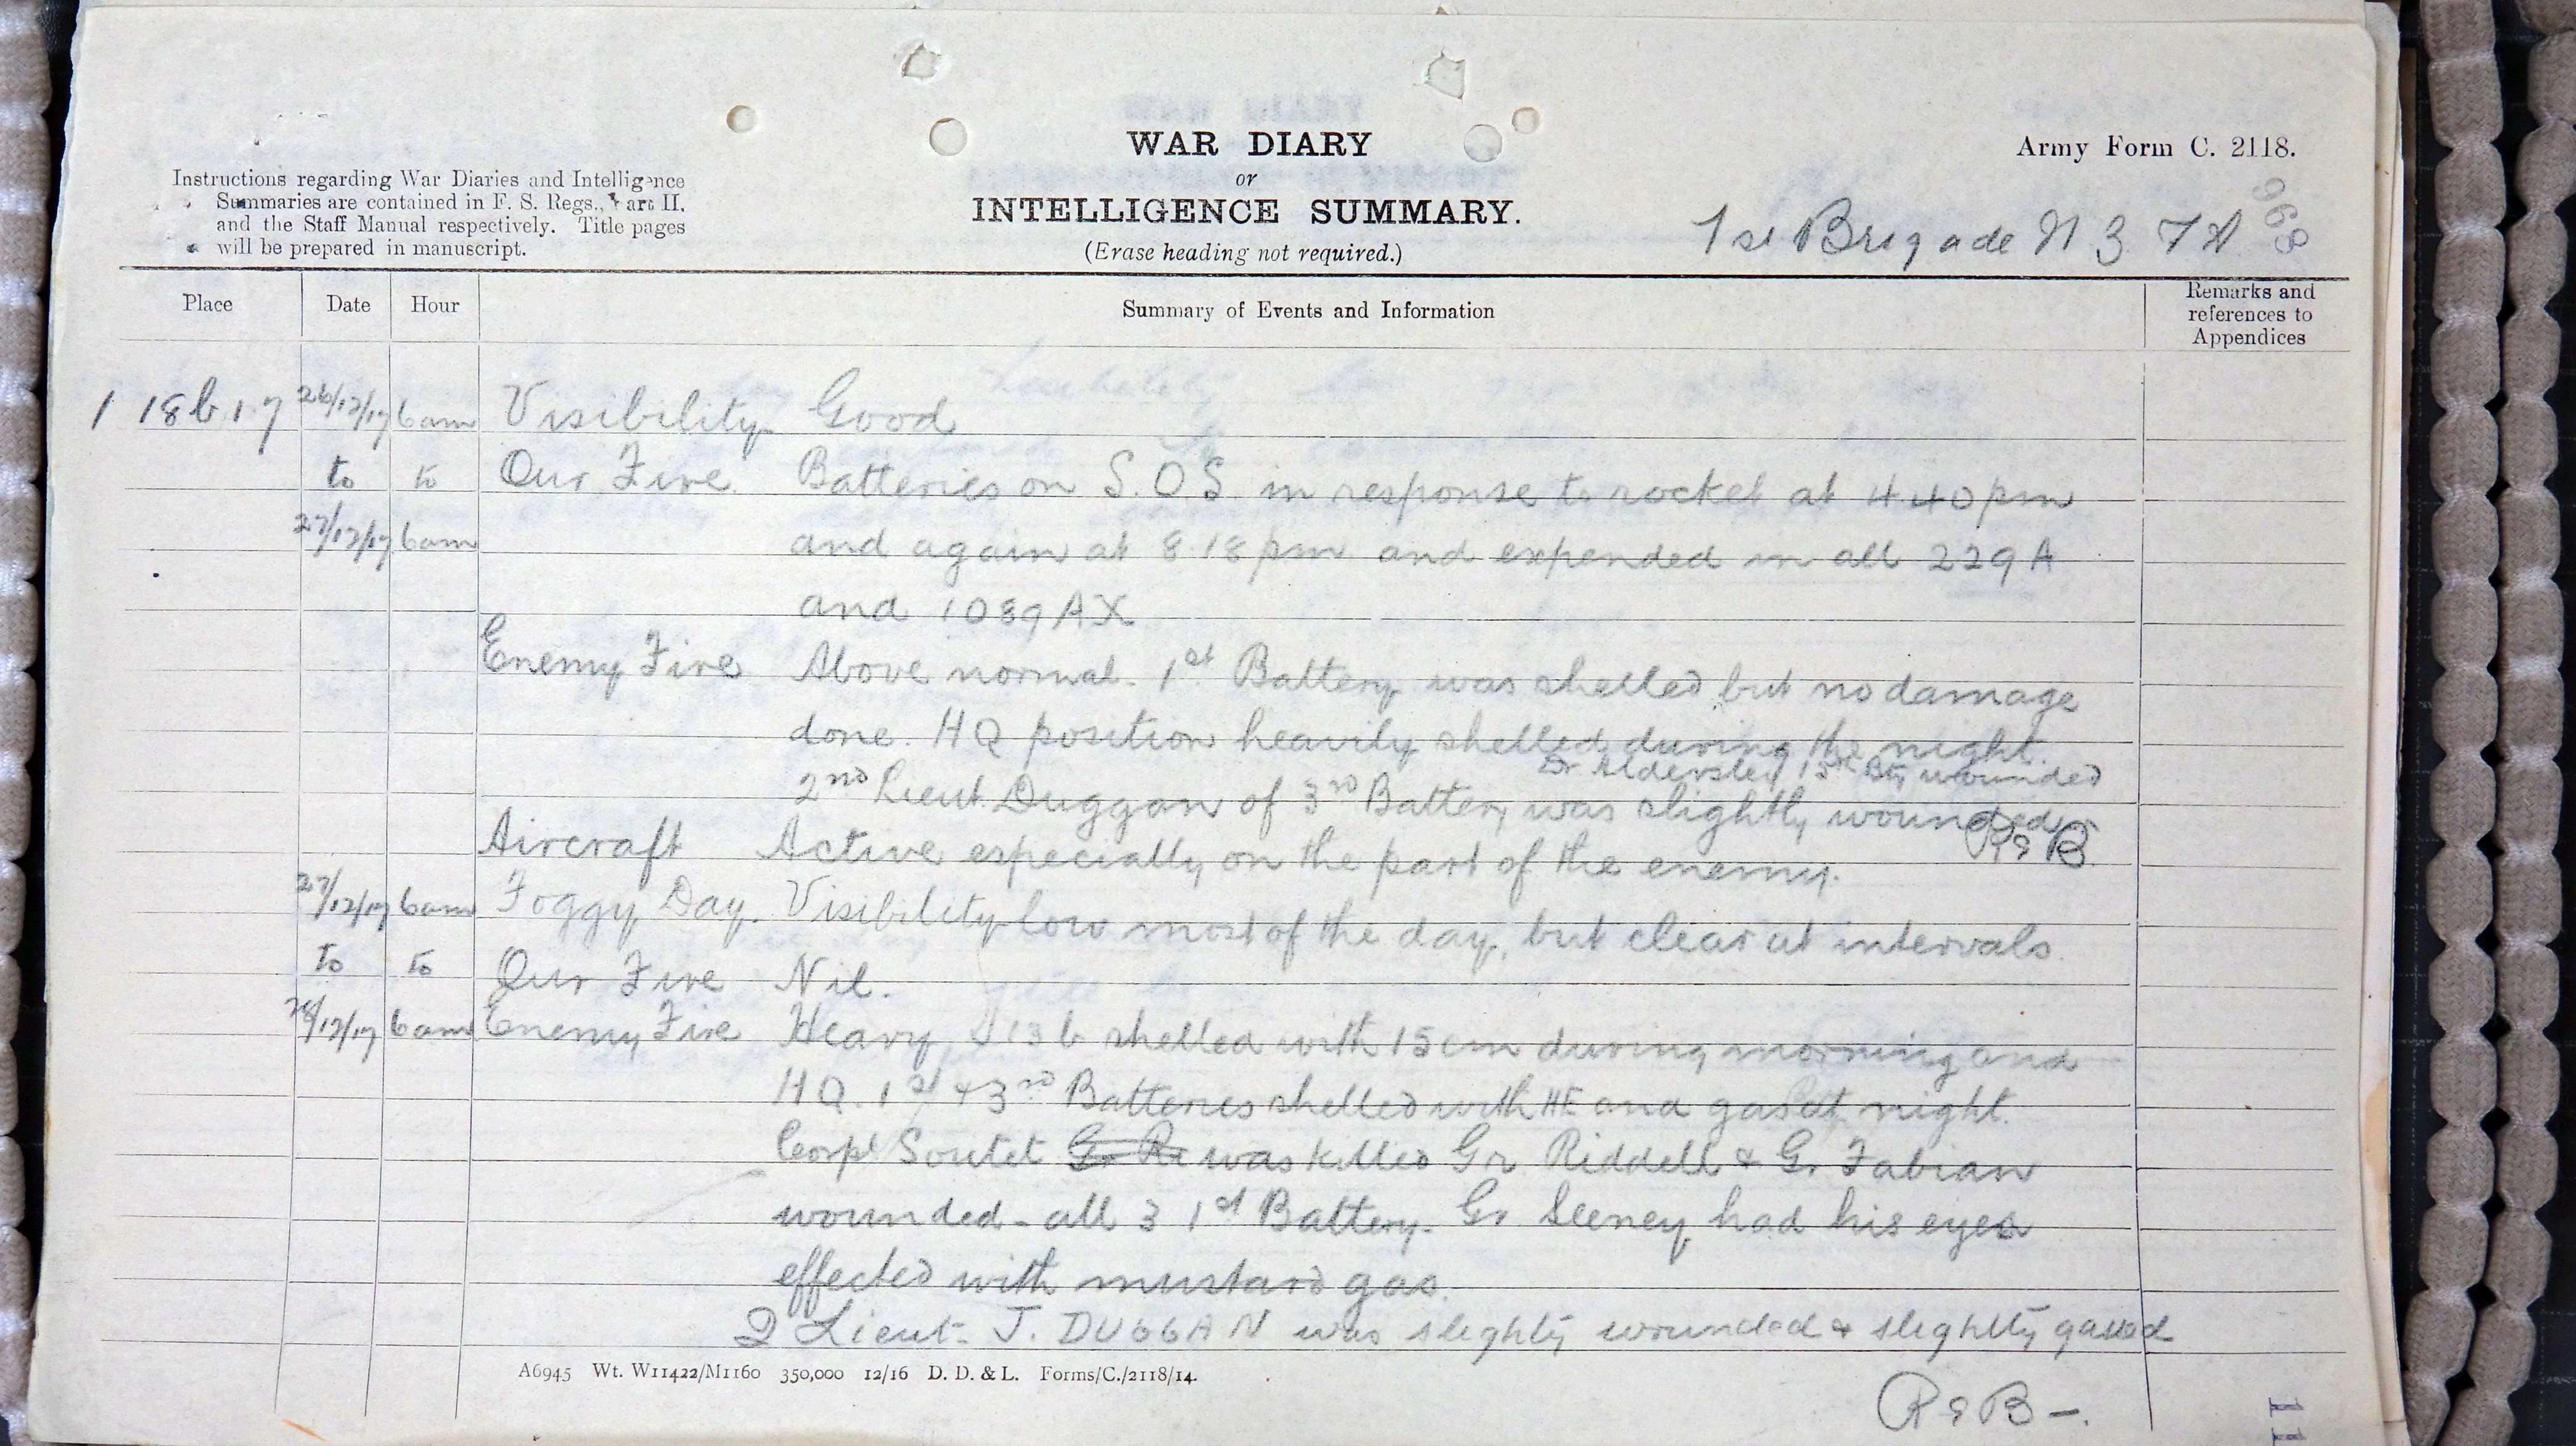 WAR DIARY
or
INTELLIGENCE SUMMARY.
(Erase heading not required.)
Army Form C. 2118.
Instructions regarding War Diaries and Intelligence
Summaries are contained in F. S. Regs., Part II.
and the Staff Manual respectively. Title pages
will be prepared in manuscript.
1st Brigade N Z F A
968
Place Date Hour Summary of Events and Information Remarks and references to Appendices
1 18 b 1.7 26/12/17 6am Visibility Good
to to Our Fire. Batteries on S.O.S. in response to rocket at 4 40 pm
27/12/17 6am and again at 8.18 pm and expended in all 229 A
and 1089 AX
Enemy Fire Above normal. 1st Battery was shelled but no damage
done. HQ position heavily shelled during the night.
Dr Aldersley 1st Bty wounded
2nd Lieut. Duggan of 3rd Battery was slightly wounded
Aircraft Active especially on the part of the enemy. R&B
27/12/17 6am Foggy Day. Visibility low most of the day, but clear at intervals.
to to Our Fire Nil.
28/12/17 6am Enemy Fire Heavy 13 b shelled with 15cm during morning and
HQ. 1st & 3rd Batteries shelled with HE and gas at night.
Corpl Soutet G. R. was killed Gr Riddell & Gr Fabian
wounded - all 3 1st Battery. Gr Seeney had his eyes
effected with mustard gas.
2 Lieut. J. DUGGAN was slightly wounded & slightly gassed
R&B -.
A6945 Wt. W11422/M1160 350,000 12/16 D. D. & L. Forms/C./2118/14.